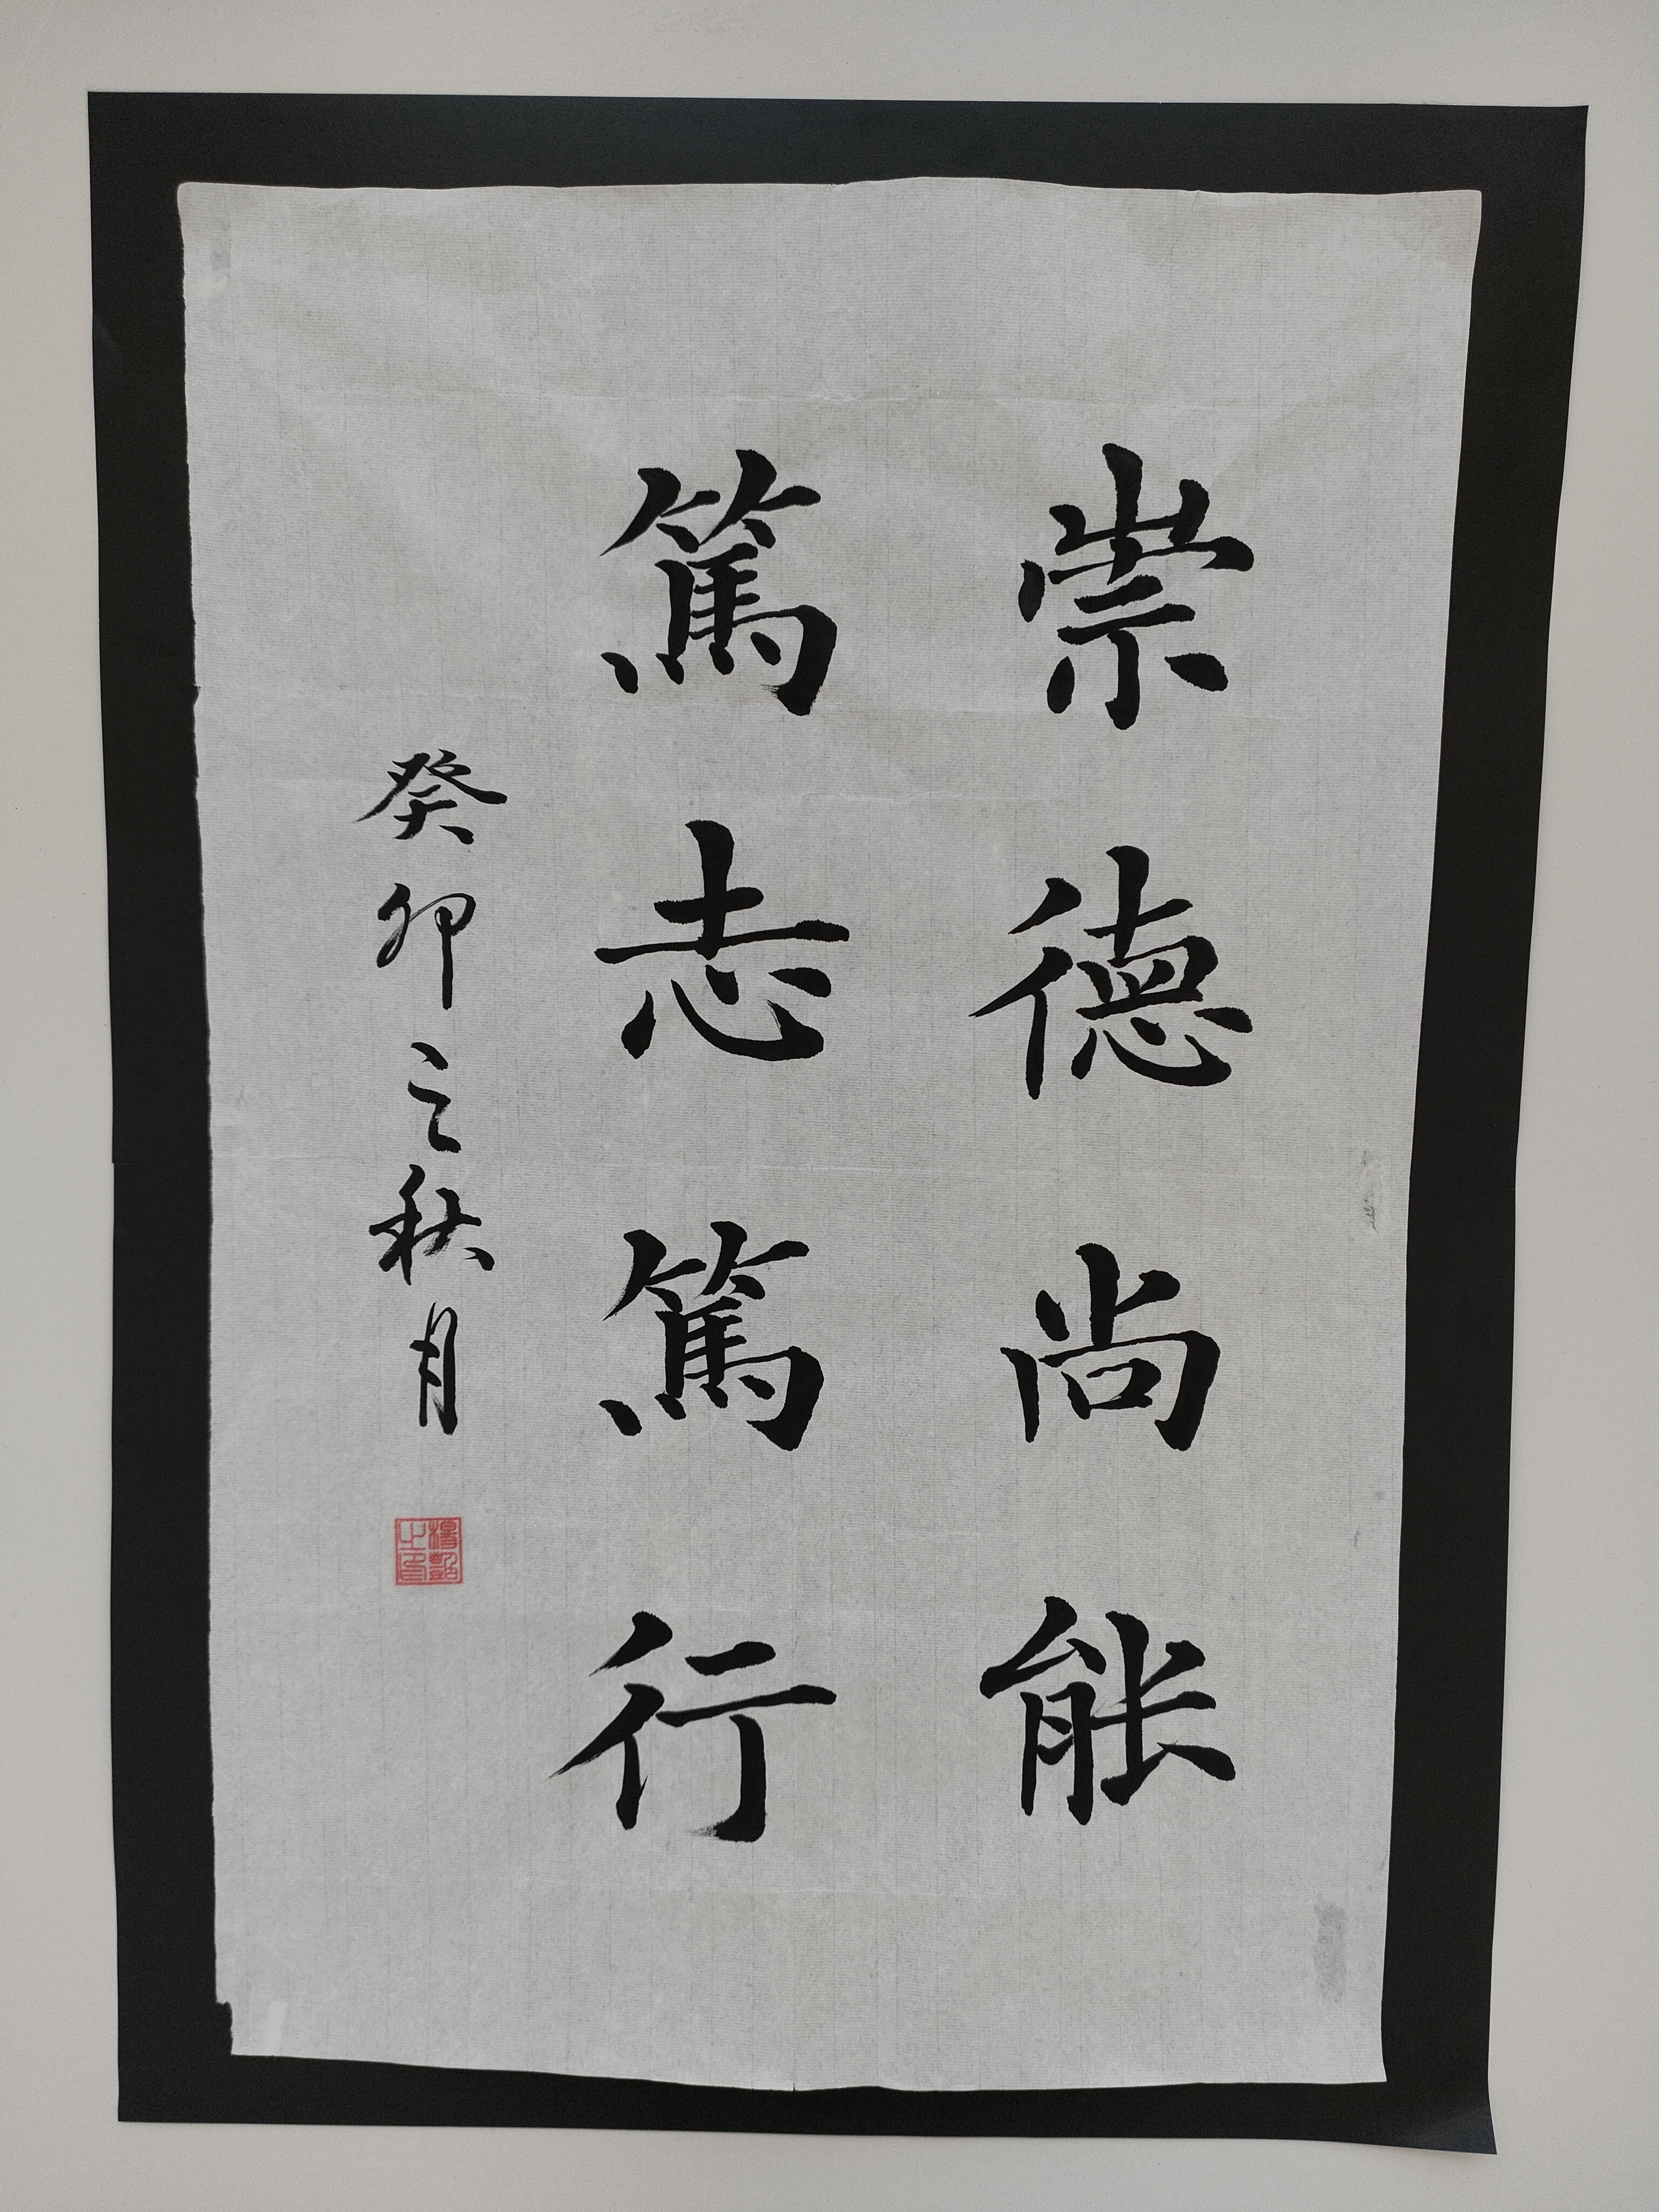 崇德尚能
篤志篤行
癸卯之秋月